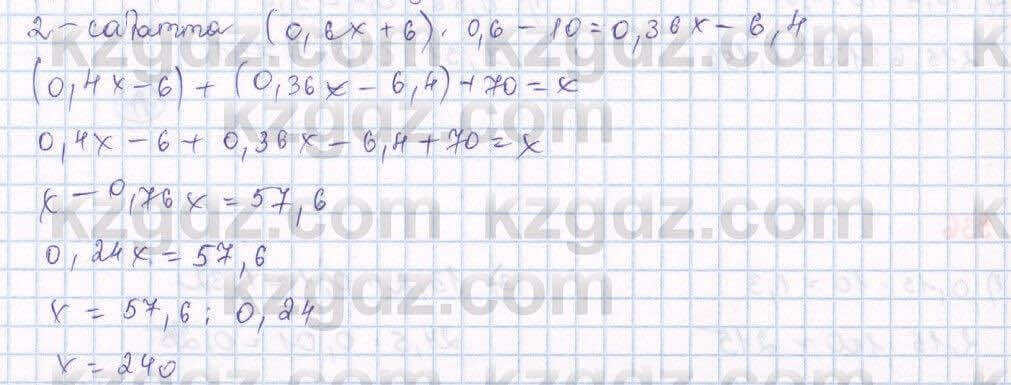 2-сағатта (0,6x+6)·0,6-10=0,36x-6,4
(0,4x-6)+(0,36x-6,4)+70=x
0,4x-6+0,36x-6,4+70=x
x-0,76x=57,6
0,24x=57,6
x=57,6:0,24
x=240
kzgdz.com